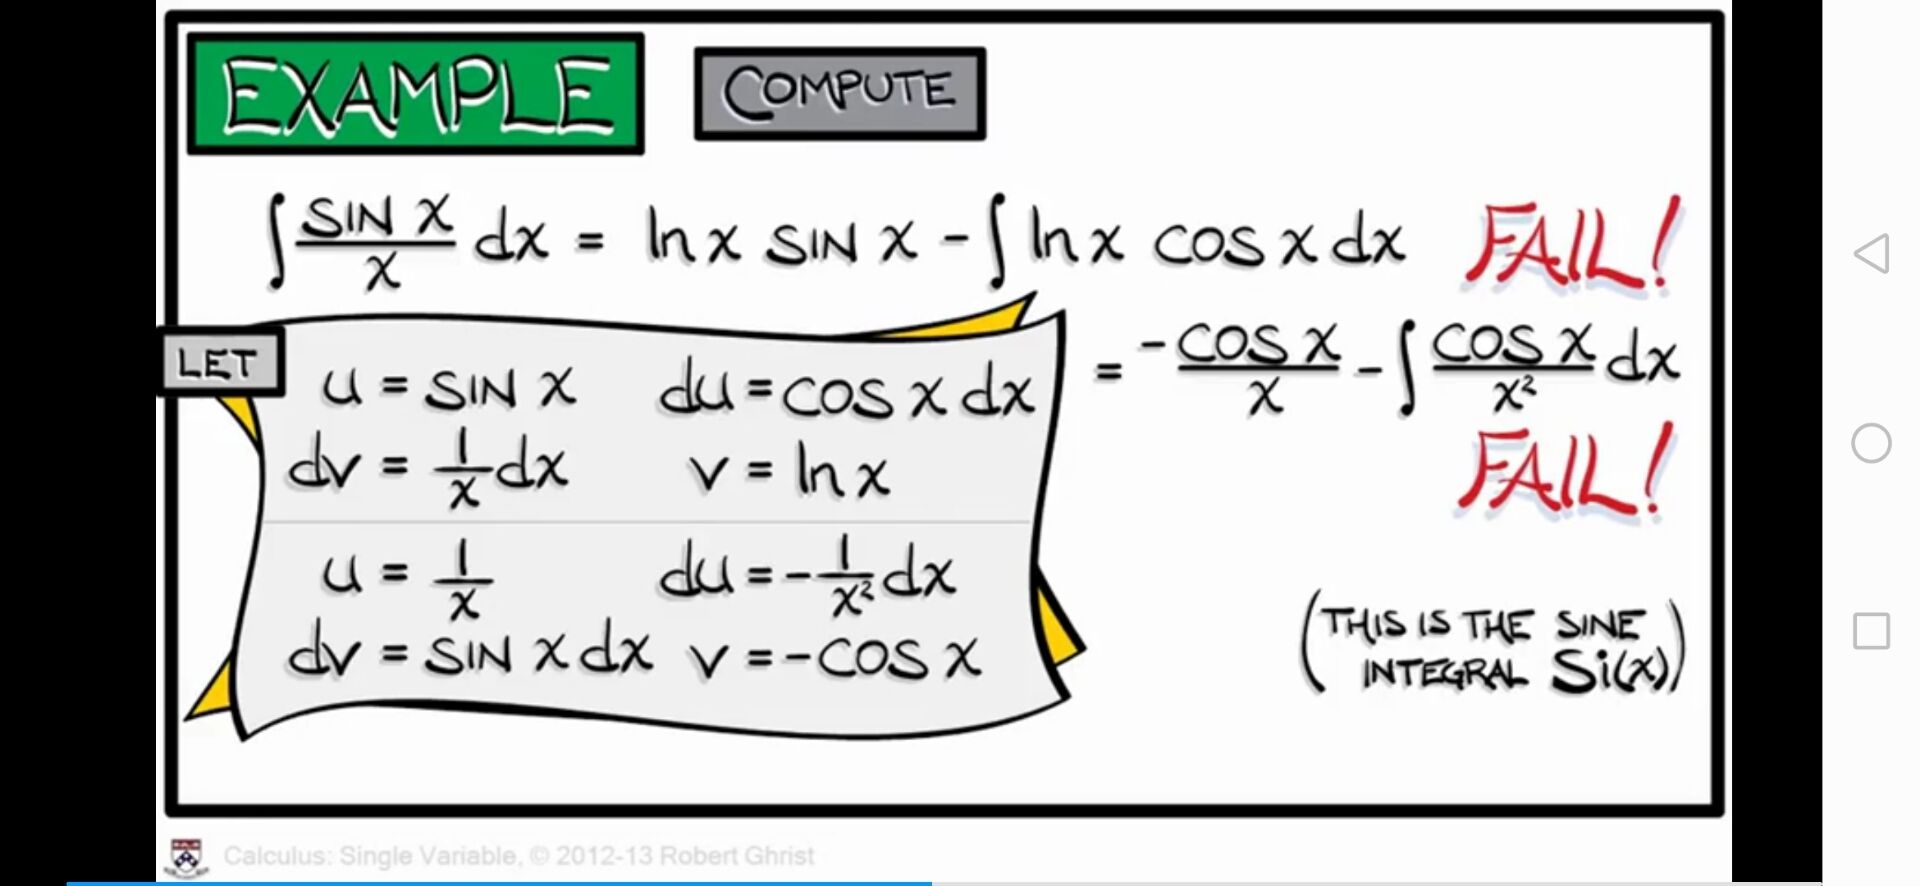 EXAMPLE
COMPUTE
∫ SIN x / x dx = ln x SIN x - ∫ ln x COS x dx FAIL!
= -COS x / x - ∫ COS x / x² dx
FAIL!
LET
u = SIN x du = COS x dx
dv = 1/x dx v = ln x
u = 1/x du = - 1/x² dx
dv = SIN x dx v = - COS x
(THIS IS THE SINE
INTEGRAL Si(x))
Calculus: Single Variable, © 2012-13 Robert Ghrist